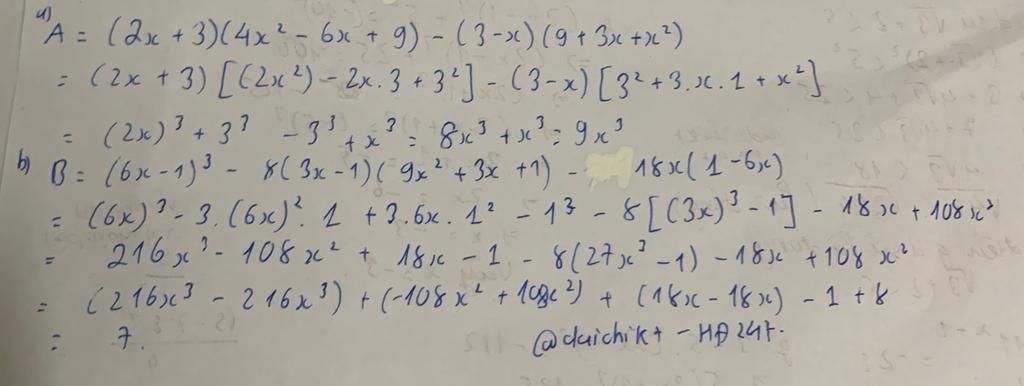 a)
A = (2x + 3)(4x² - 6x + 9) - (3-x)(9 + 3x + x²)
= (2x + 3)[(2x²) - 2x.3 + 3²] - (3-x)[3² + 3.x.1 + x²]
= (2x)³ + 3³ - 3³ + x³ = 8x³ + x³ = 9x³
b) B = (6x - 1)³ - 8(3x-1)(9x² + 3x + 1) - 18x(1-6x)
= (6x)³ - 3.(6x)².1 + 3.6x.1² - 1³ - 8[(3x)³ - 1] - 18x + 108x²
= 216x³ - 108x² + 18x - 1 - 8(27x³ - 1) - 18x + 108x²
= (216x³ - 216x³) + (-108x² + 108x²) + (18x - 18x) - 1 + 8
= 7.
@daichikt - HĐ247.